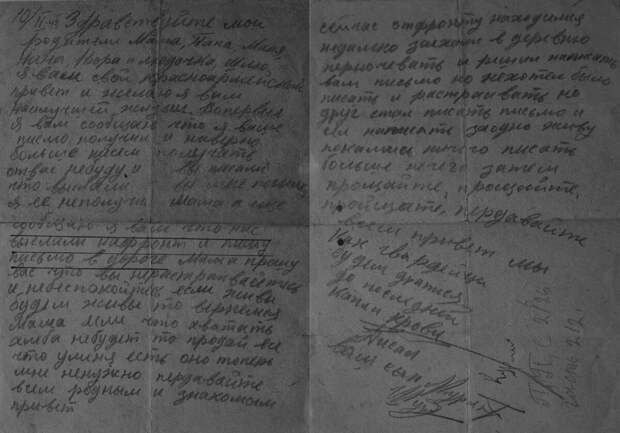 10/II Здравствуйте мои
родители Мама, Папа
я вам свой красноармейский
привет и желаю я вам
наилучшей жизни. Вопервых
я вам сообщаю что я ваше
писмо получил и наверно
больше писем получать
от вас небуду и вы писали
что выслали вы мне
я её неполучил мама и еще
сообщаю я вам что нас
выслали нафронт и пишу
письмо в дороге Мама я прошу
вас что вы нерастраивайтесь
и небеспокойтесь если живы
будем живы то вернемся
Мама если что хватать
хлеба небудет то продай все
что уминя есть оно теперь
мне ненужно пердавайте
всем родным и знакомым
привет
сейчас от фронту находимся
недалеко заехали в деревню
переночевать и решил написать
вам письмо но нехотел было
писать и растраивать но
друг стал писать письмо и
я написать заодно живу
пока нечего писать
больше нечего затем
прощайте, прощайте,
прощайте, пердавайте
всем привет мы
Как гвардейци
будем дратся
до последней
капли крови
Писал
ваш сын